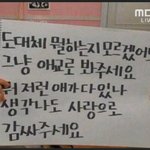 MBC
도대체 뭘하는지 모르겠어
그냥 애교로 봐주세요
저런 애가 다있나
생각나도 사랑으로
감싸주세요